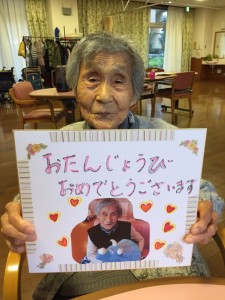 おたんじょうび
おめでとうございます